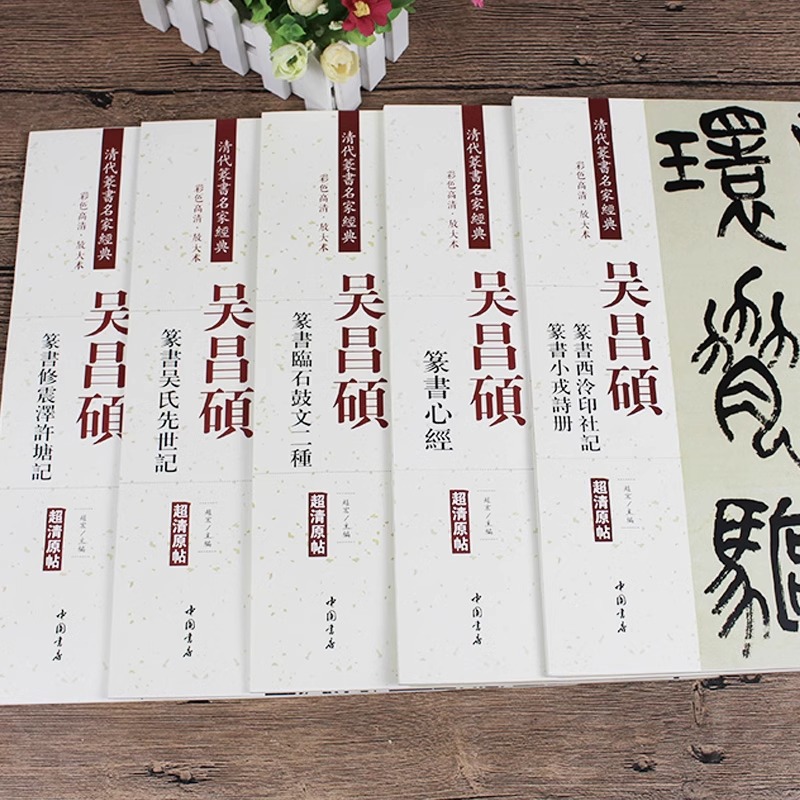 清代篆書名家經典
彩色高清·放大本
吴昌碩
篆書修震澤許塘記
超清原帖
趙宏/主編
中国書店
清代篆書名家經典
彩色高清·放大本
吴昌碩
篆書吴氏先世記
超清原帖
趙宏/主編
中国書店
清代篆書名家經典
彩色高清·放大本
吴昌碩
篆書臨石鼓文二種
超清原帖
趙宏/主編
中国書店
清代篆書名家經典
彩色高清·放大本
吴昌碩
篆書心經
超清原帖
趙宏/主編
中国書店
清代篆書名家經典
彩色高清·放大本
吴昌碩
篆書西泠印社記
篆書小戎詩册
超清原帖
趙宏/主編
中国書店
環
驅